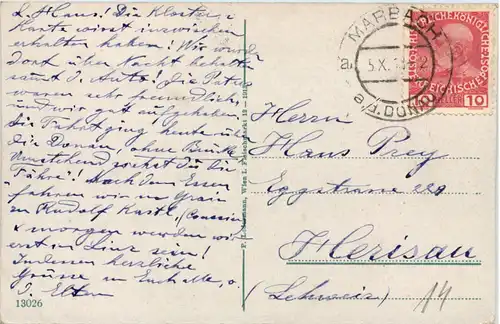 L. Hans! Die Kloster-
Karte wirst inzwischen
erhalten haben! Wir wurden
dort über Nacht behalten
samt d. Auto! Die Patres
waren sehr freundlich,
und wir gut aufgehoben.
Die Fahrt ging heute über
die Donau, ohne Brücke
Umstehend siehst Du die
Fähre! Nach dem Essen
fahren wir nach Grein
zu Rudolf Kastl,
& morgen werden wir
erst in Linz sein!
Indessen herzliche
Grüsse an Euch alle, v.
d. Eltern
13026
Wien I.
MARBACH
a a
5.X.
a/d. DONAU
10 HELLER 10
Herrn
Hans Prey
Eggstrasse 220
Herisau
(Schweiz)
14